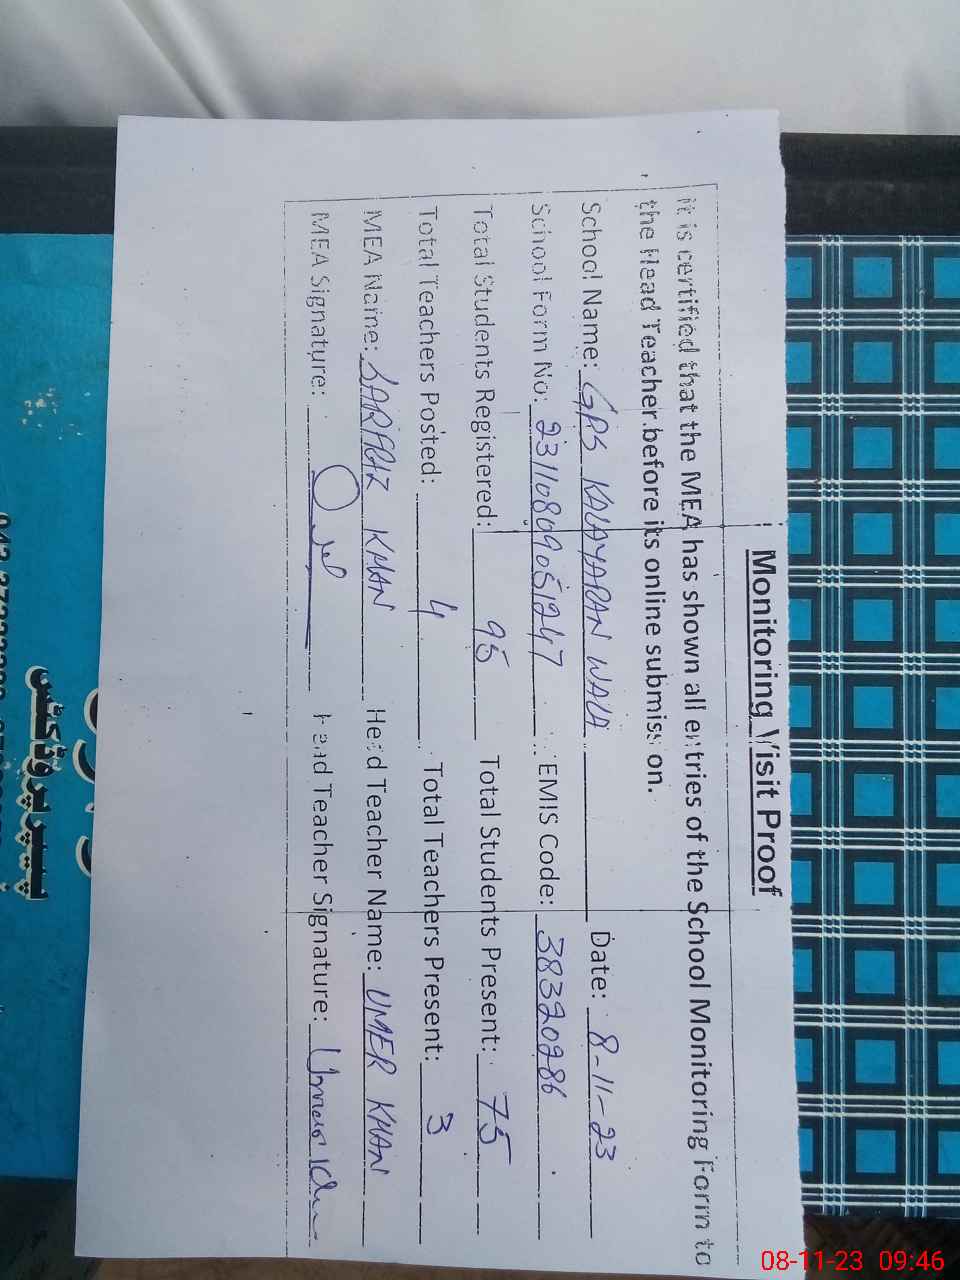 Monitoring Visit Proof
it is certified that the MEA has shown all entries of the School Monitoring Form to
the Head Teacher before its online submission.
School Name: GPS KALAYARAN WALA Date: 8-11-23
School Form No: 23110809051247 EMIS Code: 38320286
Total Students Registered: 95 Total Students Present: 75
Total Teachers Posted: 4 Total Teachers Present: 3
MEA Name: SARFRAZ KHAN Head Teacher Name: UMER KHAN
MEA Signature: Head Teacher Signature: Umar Khan
پیپر پروڈکٹس
08-11-23 09:46